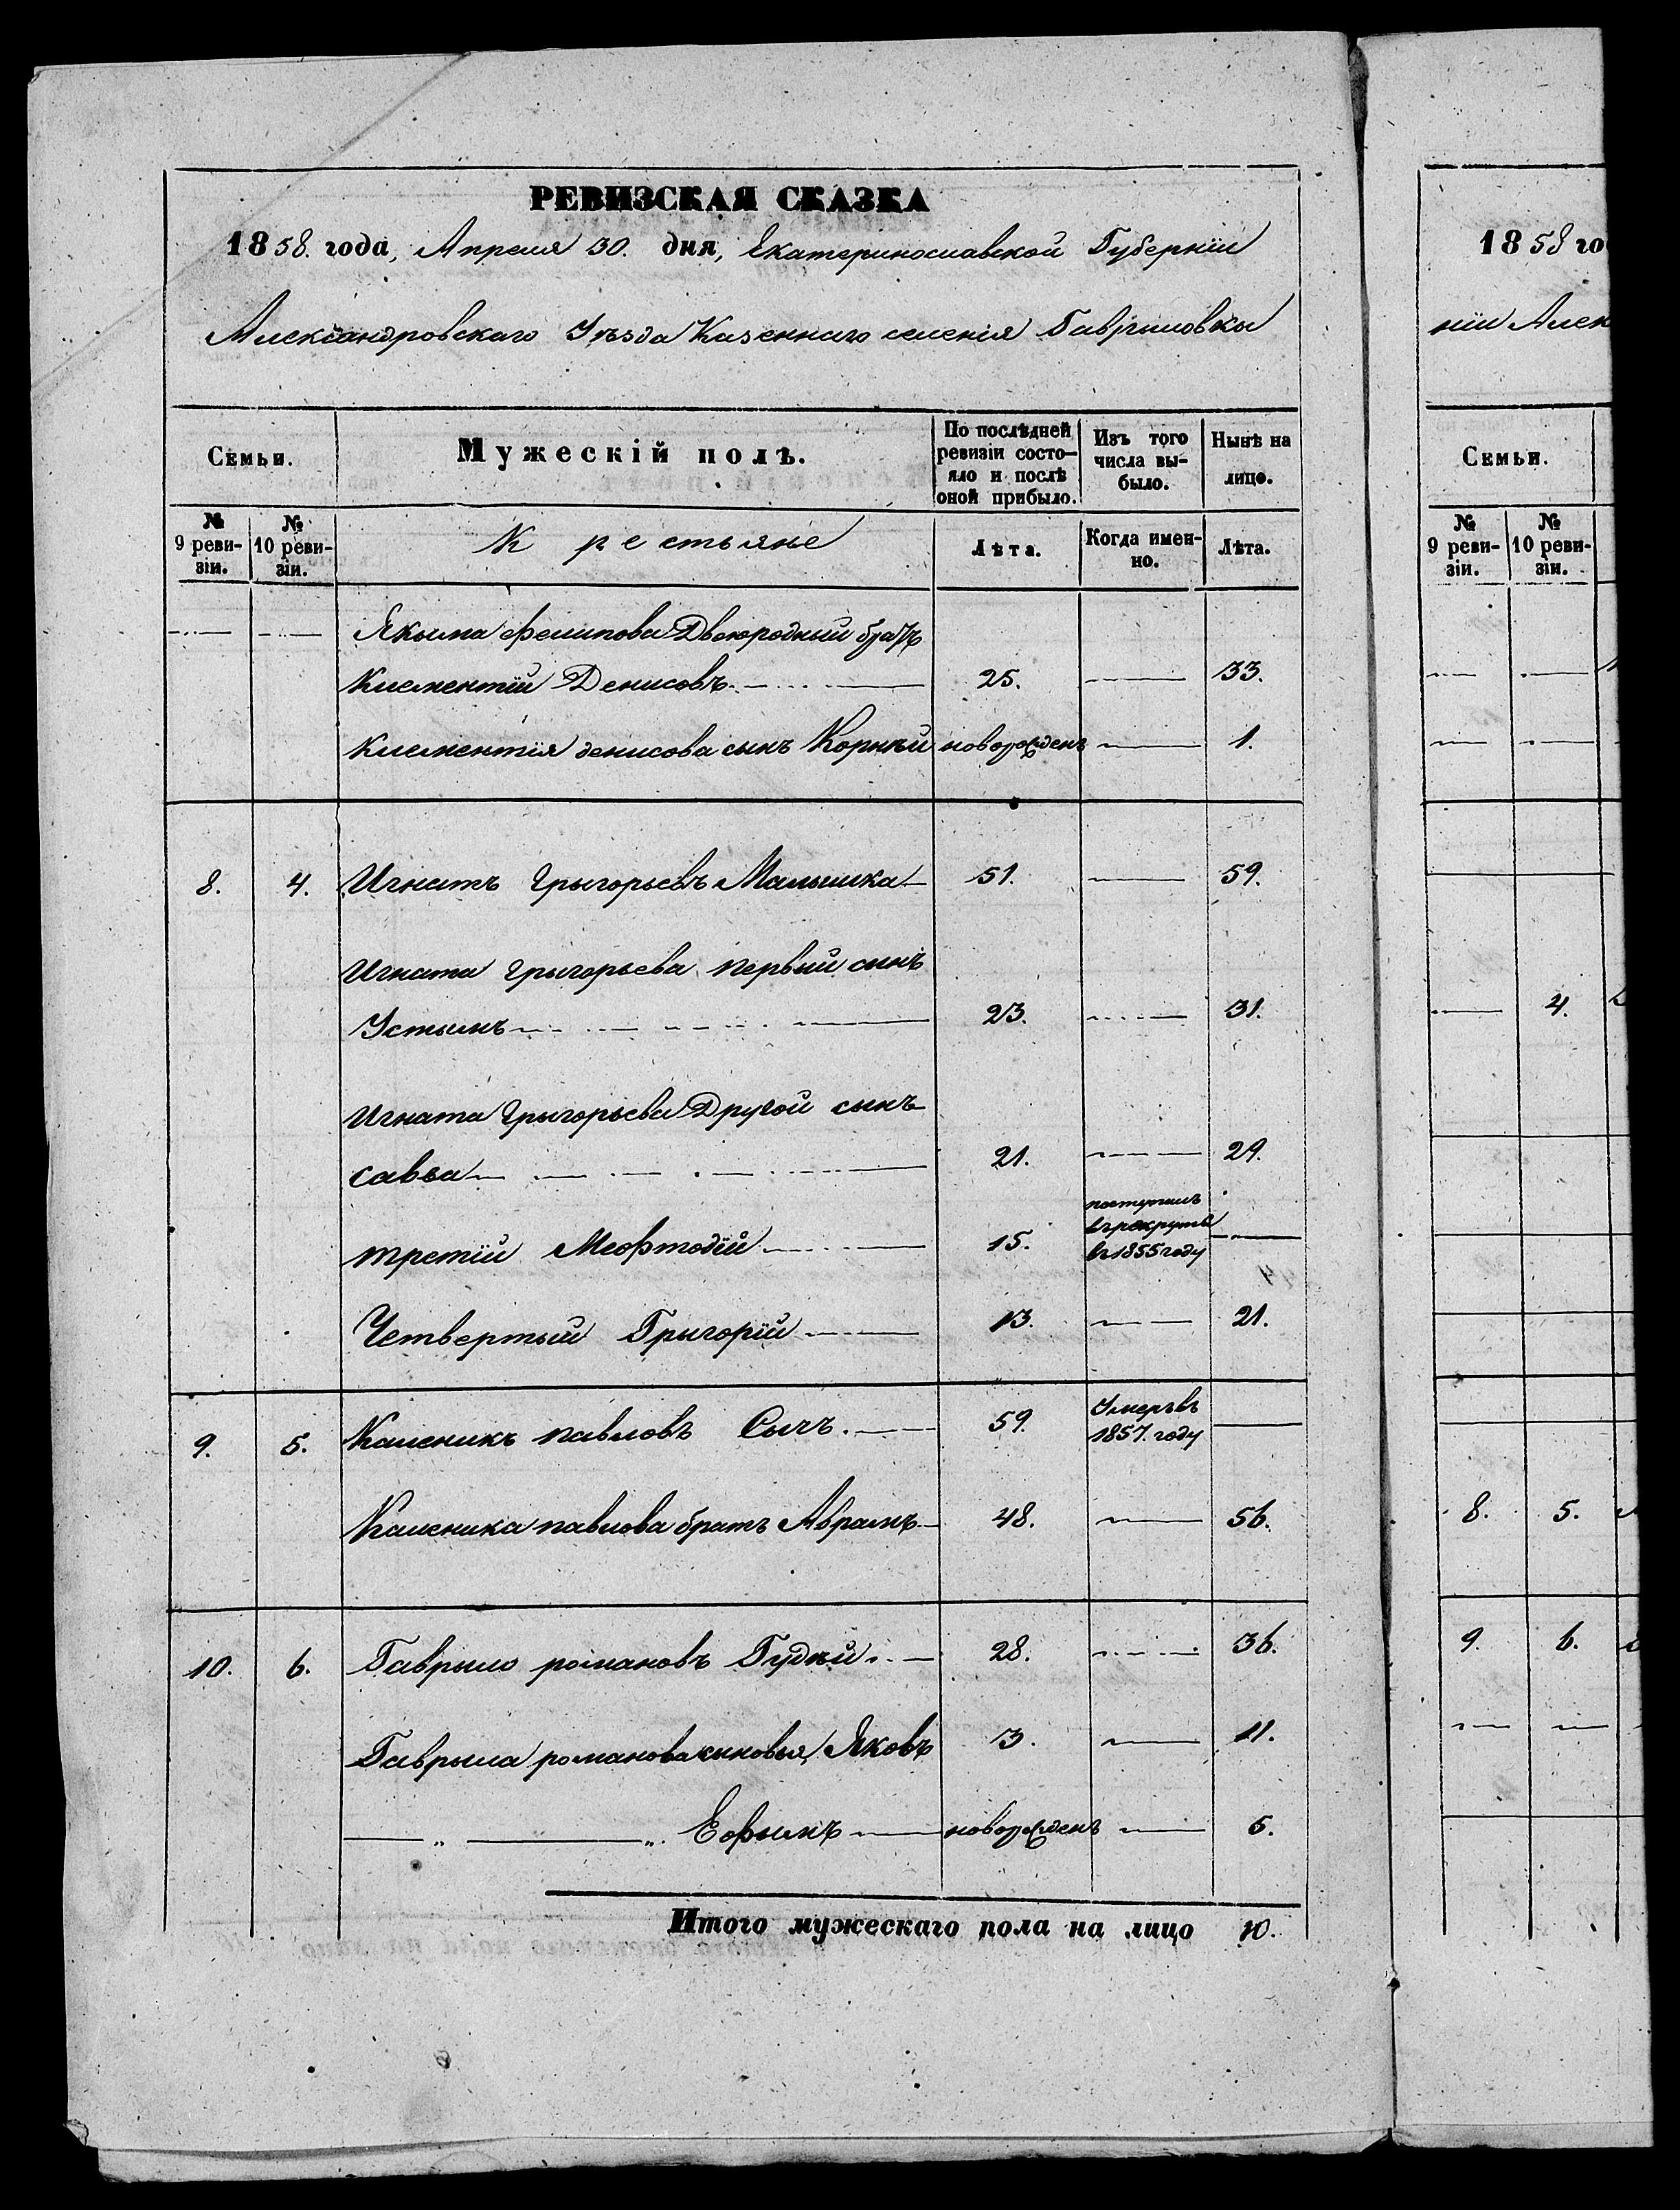 РЕВИЗСКАЯ СКАЗКА
1858. года, Апреля 30. дня, Екатеринославской Губерніи
Александровскаго Уѣзда Казеннаго селенія Гаврыловкы
Семьи.
Мужескій полъ.
По послѣдней ревизіи состояло и послѣ оной прибыло.
Изъ того числа выбыло.
Нынѣ на лицо.
№ 9 ревизіи.
№ 10 ревизіи.
Крестьяне
Лѣта.
Когда именно.
Лѣта.
Якыма Фелипова Двоюродный братъ
Клементій Денисовъ. 25. 33.
Клементія денисова сынъ Корнѣй новорожденъ 1.
8. 4. Игнатъ Грыгорьевъ Малышка 51. 59.
Игната Грыгорьева первый сынъ
Устынъ 23. 31.
Игната Грыгорьева Другой сынъ
савва 21. 29.
третій Мефтодій 15. поступилъ
въ рекруты
въ 1855 году
Четвертый Грыгорій 13. 21.
9. 5. Каленикъ павловъ Сычъ. 59. Умеръ въ
1857. году
Каленика павлова братъ Аврамъ 48. 56.
10. 6. Гаврыло романовъ Гудзѣй 28. 36.
Гаврыла романова сыновья, Яковъ 3. 11.
„ „ Ефымъ новорожденъ 5.
Итого мужескаго пола на лицо 10.
1858 го
ніи Алек
Семьи.
№ 9 ревизіи.
№ 10 ревизіи.
4.
8. 5.
9. 6.